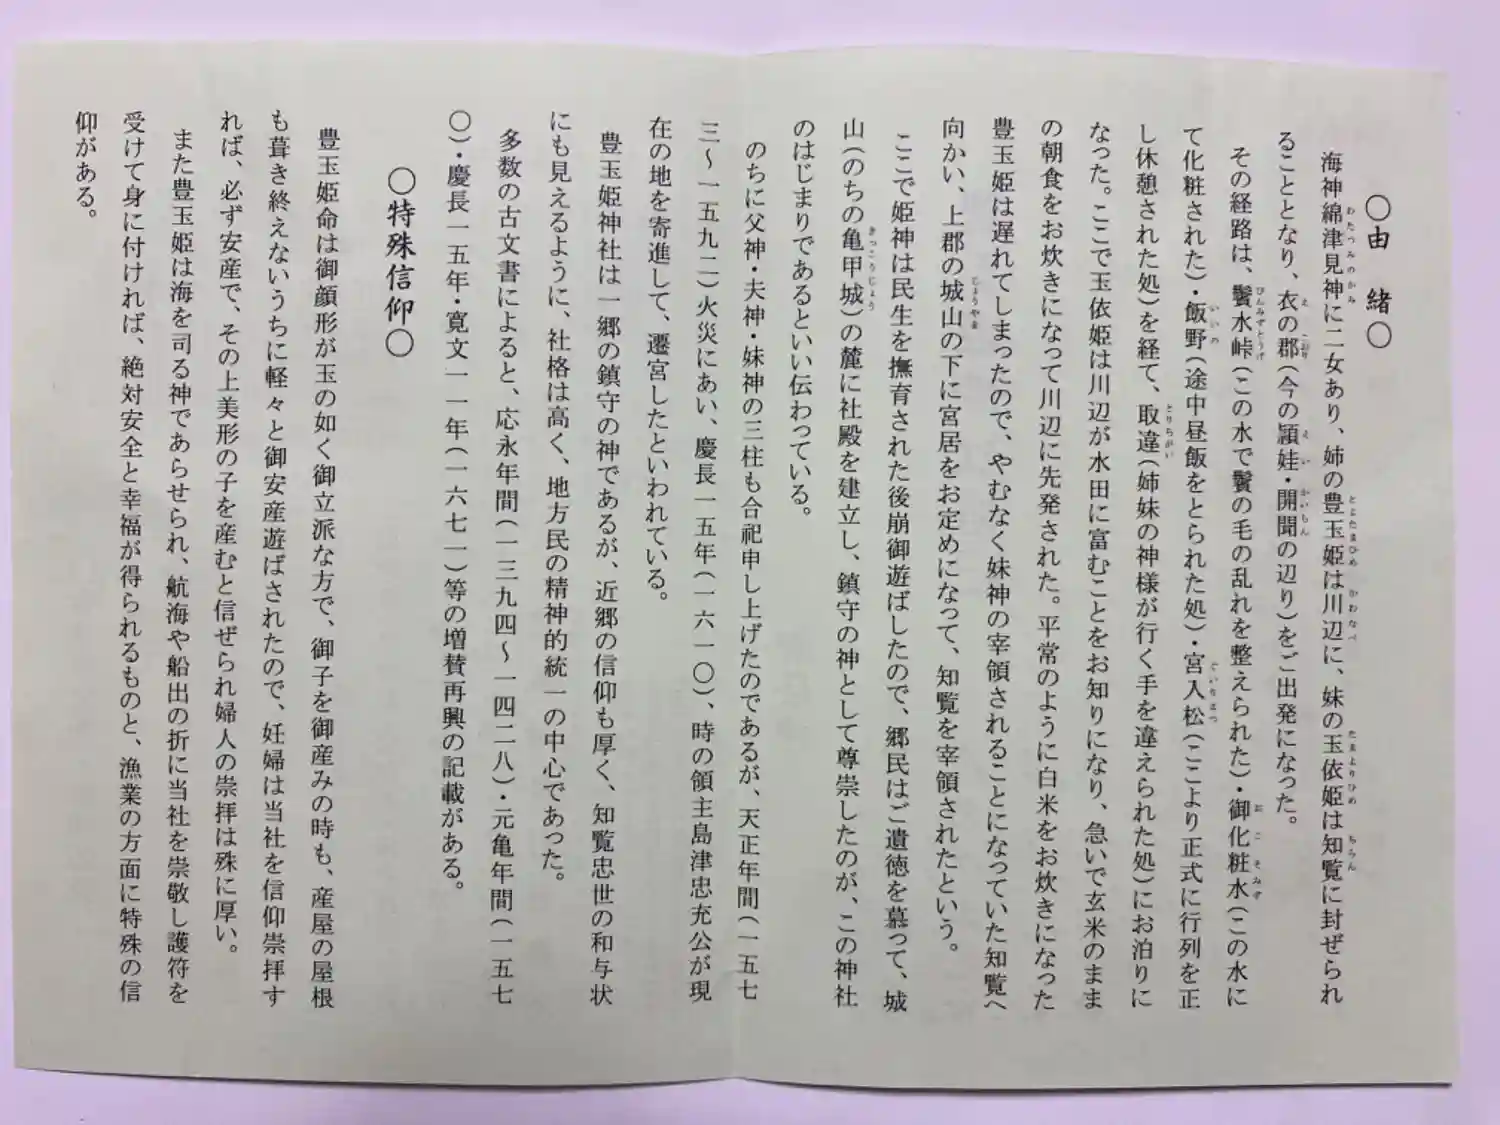 ○由　緒○
海神綿津見神に二女あり、姉の豊玉姫は川辺に、妹の玉依姫は知覧に封ぜられ
ることとなり、衣の郡（今の頴娃・開聞の辺り）をご出発になった。
その経路は、鬢水峠（この水で鬢の毛の乱れを整えられた）・御化粧水（この水に
て化粧された）・飯野（途中昼飯をとられた処）・宮入松（ここより正式に行列を正
し休憩された処）を経て、取違（姉妹の神様が行く手を違えられた処）にお泊りに
なった。ここで玉依姫は川辺が水田に富むことをお知りになり、急いで玄米のまま
の朝食をお炊きになって川辺に先発された。平常のように白米をお炊きになった
豊玉姫は遅れてしまったので、やむなく妹神の宰領されることになっていた知覧へ
向かい、上郡の城山の下に宮居をお定めになって、知覧を宰領されたという。
ここで姫神は民生を撫育された後崩御遊ばしたので、郷民はご遺徳を慕って、城
山（のちの亀甲城）の麓に社殿を建立し、鎮守の神として尊崇したのが、この神社
のはじまりであるといい伝わっている。
のちに父神・夫神・妹神の三柱も合祀申し上げたのであるが、天正年間（一五七
三～一五九二）火災にあい、慶長一五年（一六一〇）、時の領主島津忠充公が現
在の地を寄進して、遷宮したといわれている。
豊玉姫神社は一郷の鎮守の神であるが、近郷の信仰も厚く、知覧忠世の和与状
にも見えるように、社格は高く、地方民の精神的統一の中心であった。
多数の古文書によると、応永年間（一三九四～一四二八）・元亀年間（一五七
〇）・慶長一五年・寛文一一年（一六七一）等の増賛再興の記載がある。
○特殊信仰○
豊玉姫命は御顔形が玉の如く御立派な方で、御子を御産みの時も、産屋の屋根
も葺き終えないうちに軽々と御安産遊ばされたので、妊婦は当社を信仰崇拝す
れば、必ず安産で、その上美形の子を産むと信ぜられ婦人の崇拝は殊に厚い。
また豊玉姫は海を司る神であらせられ、航海や船出の折に当社を崇敬し護符を
受けて身に付ければ、絶対安全と幸福が得られるものと、漁業の方面に特殊の信
仰がある。